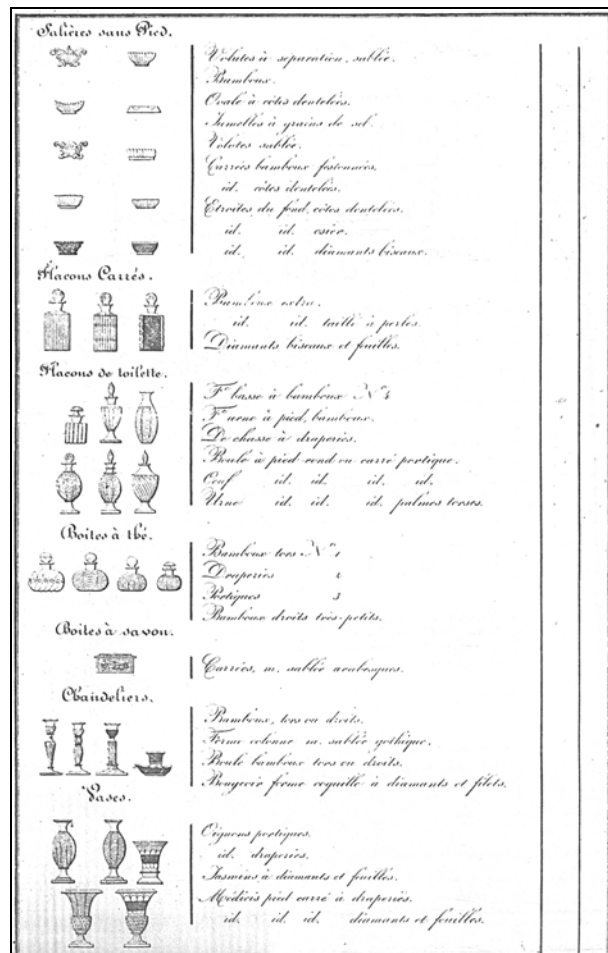 Salières sans Pied.
Volutes à séparation, sablée.
Bambous.
Ovale à côtes dentelées.
Jumelles à grains de sel.
Volutes sablée.
Carrées bambous festonnées.
id. côtes dentelées.
Etroites du fond, côtes dentelées.
id. id. osier.
id. id. diamants biseaux.
Flacons Carrés.
Bambous extra.
id. id. taillé à perles.
Diamants biseaux et feuilles.
Flacons de toilette.
Fe basse à bambous No 4
Fe urne à pied, bambous.
De chasse à draperies.
Boule à pied rond ou carré portique.
Oeuf id. id. id. id.
Urne id. id. id. palmes torses.
Boites à thé.
Bambous tors No 1
Draperies 2
Portiques 3
Bambous droits très-petits.
Boites à savon.
Carrées, m. sablée arabesques.
Chandeliers.
Bambous, tors ou droits.
Forme colonne m. sablée gothique.
Boule bambous tors ou droits.
Bougeoir forme coquille à diamants et filets.
Vases.
Oignons portiques.
id. draperies.
Jasmins à diamants et feuilles.
Médicis pied carré à draperies.
id. id. id. diamants et feuilles.